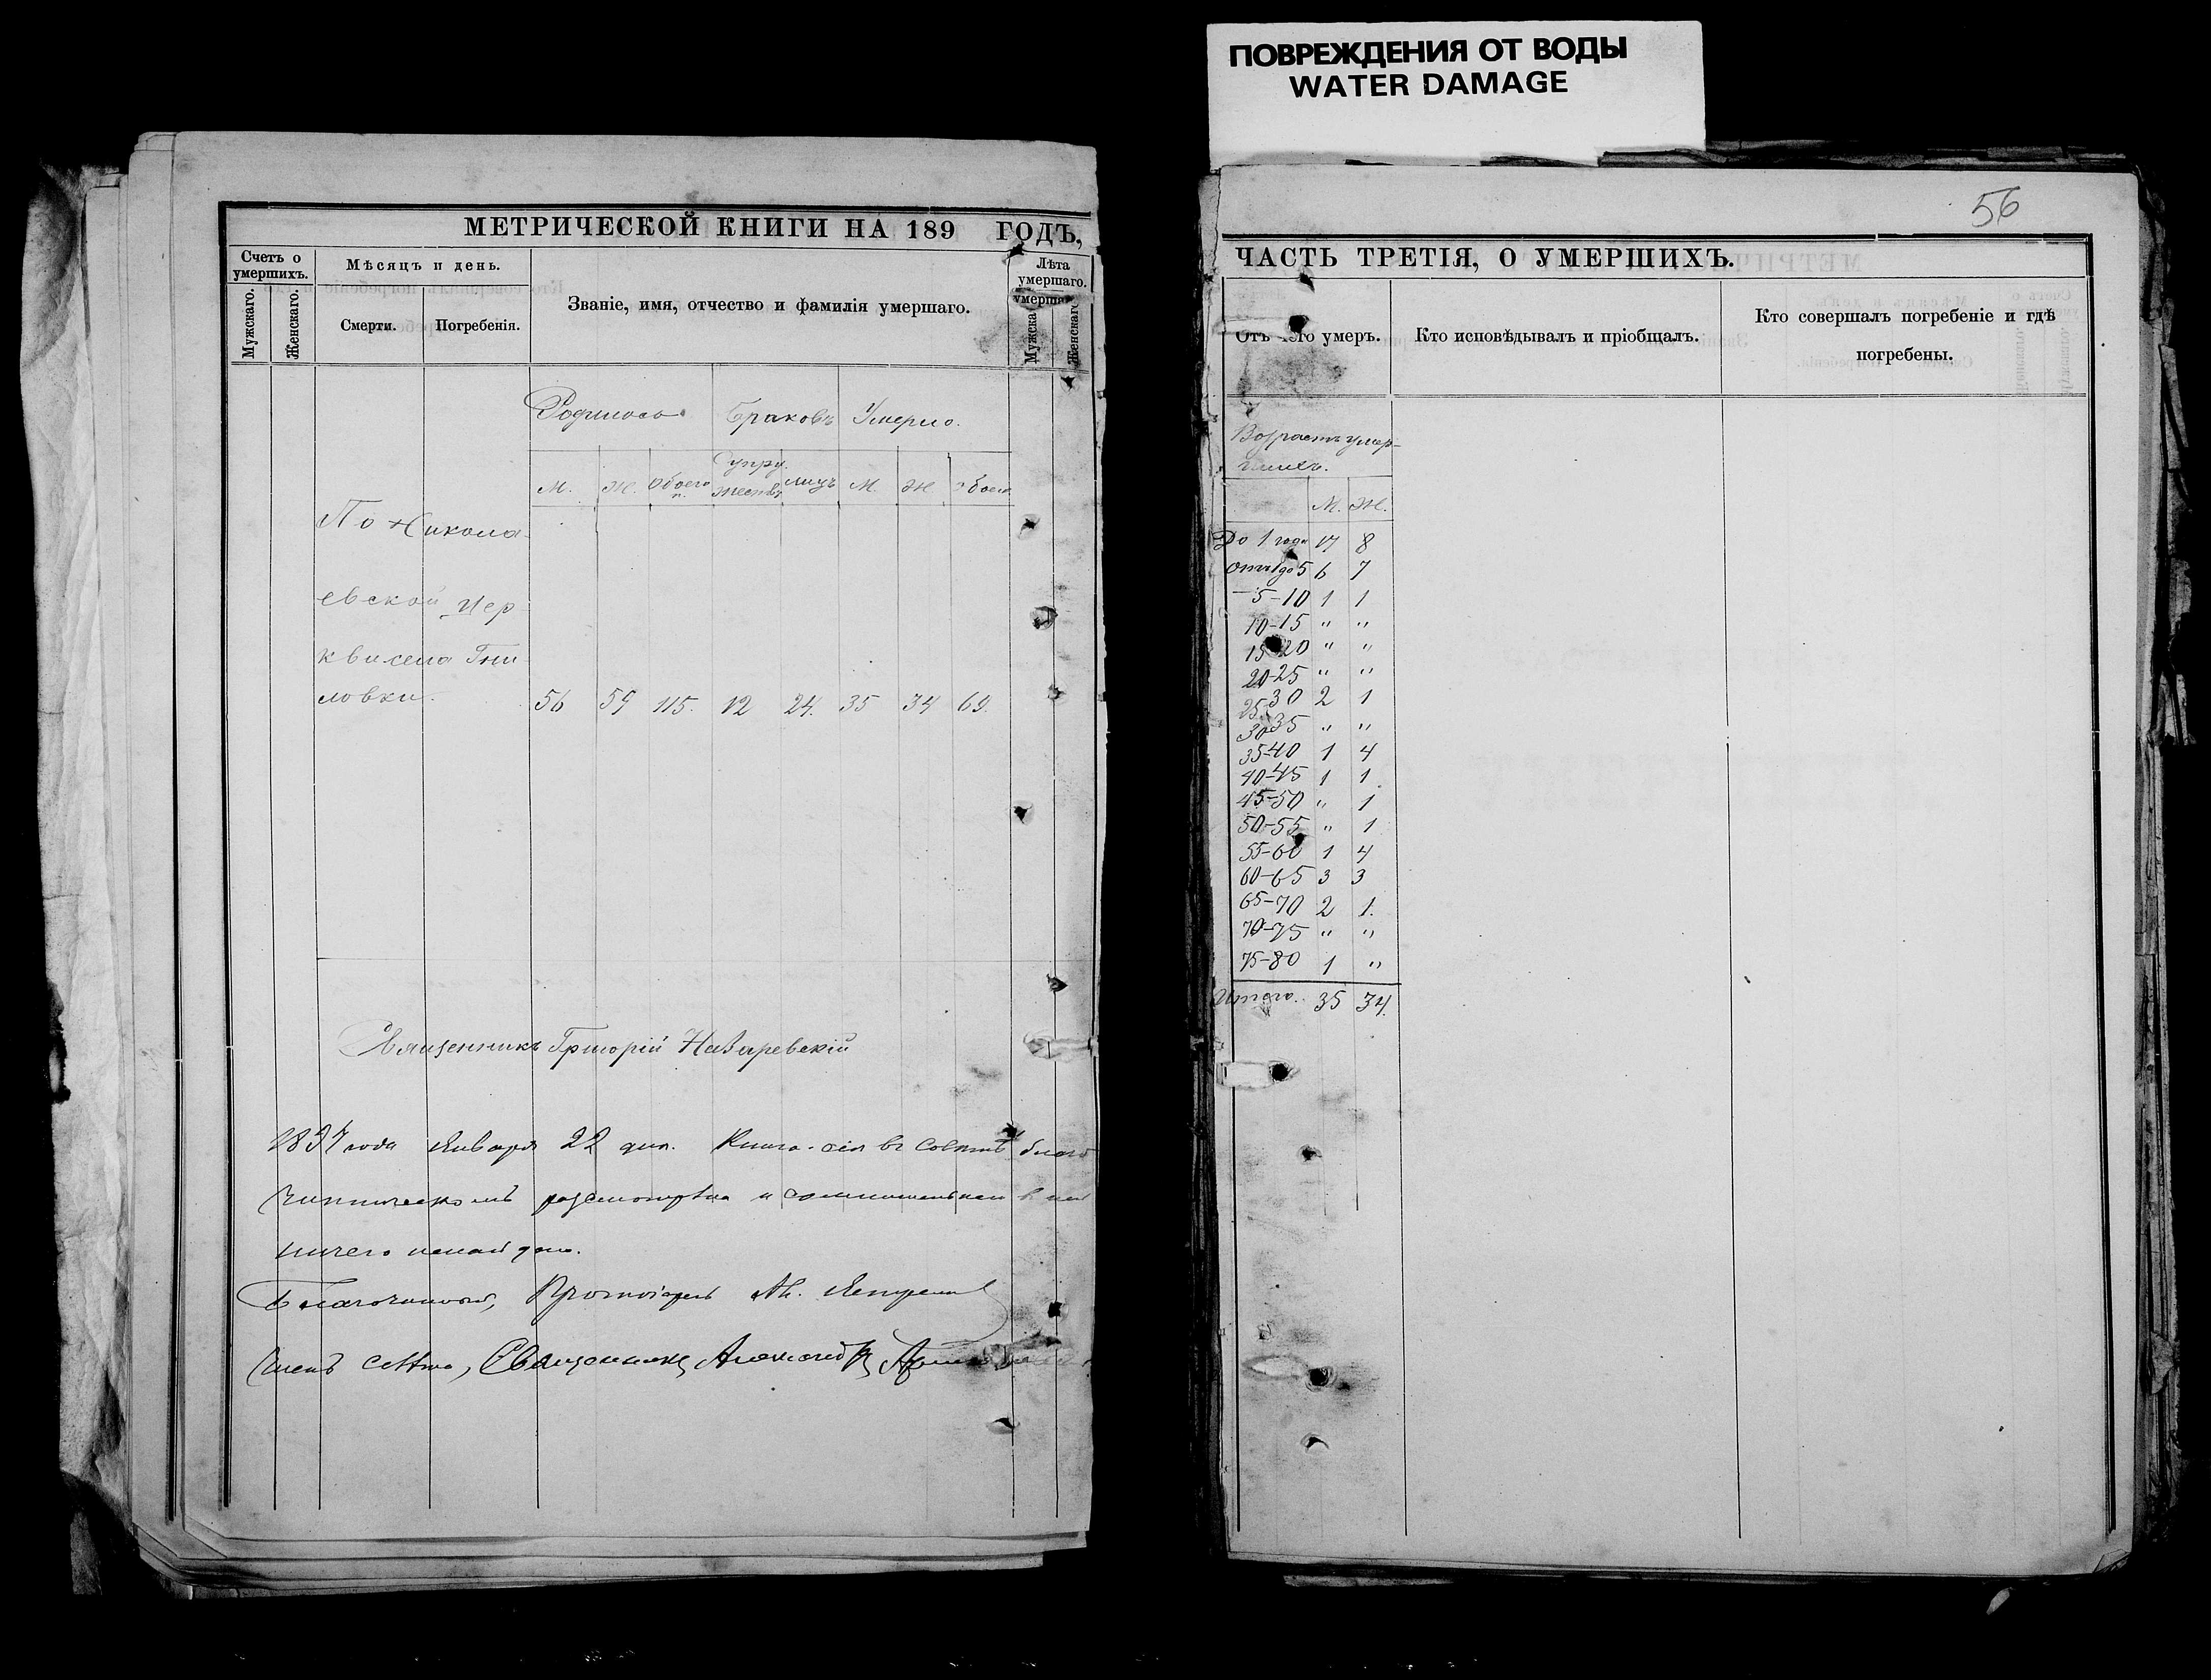 ПОВРЕЖДЕНИЯ ОТ ВОДЫ
WATER DAMAGE
МЕТРИЧЕСКОЙ КНИГИ НА 189 ГОДЪ,
Счетъ о умершихъ.
Мужскаго.
Женскаго.
Мѣсяцъ и день.
Смерти.
Погребенія.
Званіе, имя, отчество и фамилія умершаго.
Лѣта умершаго.
Мужскаго
Женскаго
Родилось Браковъ Умерло.
М. Ж. Обоего п. Супружествъ лицъ М. Ж Обоего
По Никола-
евской цер
кви села Гни
ловки. 56 59 115. 12 24. 35 34 69.
Священникъ Григорій Назаревскій
1897 года Января 22 дня. Книга сія въ Совѣтѣ благо
чинническомъ разсмотрѣна и сомнительнаго в ней
ничего ненайдено.
Благочинный, Протоіерей
Членъ Совѣта, Священникъ Александръ
56
ЧАСТЬ ТРЕТІЯ, О УМЕРШИХЪ.
Отъ чего умеръ.
Кто исповѣдывалъ и пріобщалъ.
Кто совершалъ погребеніе и гдѣ
погребены.
Возрастъ умер-
шихъ.
М. Ж.
До 1 года 17 8
Отъ 1 до 5 6 7
— 5-10 1 1
10-15 " "
15-20 " "
20-25 " "
25-30 2 1
30-35 " "
35-40 1 4
40-45 1 1
45-50 " 1
50-55 " 1
55-60 1 4
60-65 3 3
65-70 2 1.
70-75 " "
75-80 1 "
Итого. 35 34.